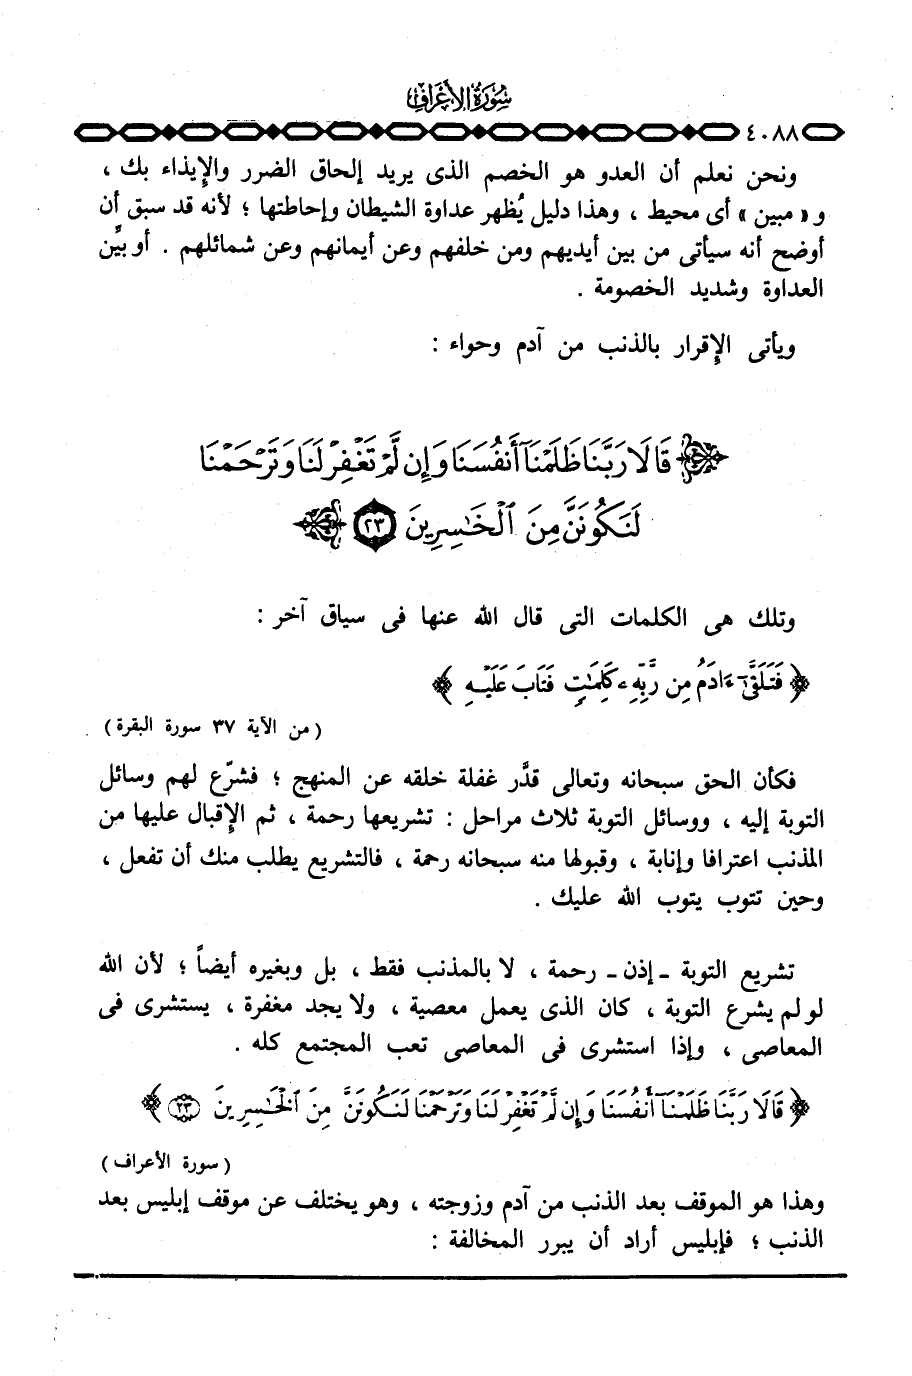 سورة الأعراف
٤٠٨٨
ونحن نعلم أن العدو هو الخصم الذى يريد إلحاق الضرر والإيذاء بك ،
و « مبين » أى محيط ، وهذا دليل يُظهر عداوة الشيطان وإحاطتها ؛ لأنه قد سبق أن
أوضح أنه سيأتى من بين أيديهم ومن خلفهم وعن أيمانهم وعن شمائلهم . أو بيِّن
العداوة وشديد الخصومة .
ويأتى الإقرار بالذنب من آدم وحواء :
قَالَا رَبَّنَا ظَلَمْنَآ أَنفُسَنَا وَإِن لَّمْ تَغْفِرْ لَنَا وَتَرْحَمْنَا
لَنَكُونَنَّ مِنَ ٱلْخَٰسِرِينَ ٢٣
وتلك هى الكلمات التى قال الله عنها فى سياق آخر :
﴿ فَتَلَقَّىٰٓ ءَادَمُ مِن رَّبِّهِۦ كَلِمَٰتٍ فَتَابَ عَلَيْهِ ﴾
( من الآية ٣٧ سورة البقرة )
فكأن الحق سبحانه وتعالى قدَّر غفلة خلقه عن المنهج ؛ فشرّع لهم وسائل
التوبة إليه ، ووسائل التوبة ثلاث مراحل : تشريعها رحمة ، ثم الإقبال عليها من
المذنب اعترافا وإنابة ، وقبولها منه سبحانه رحمة ، فالتشريع يطلب منك أن تفعل ،
وحين تتوب يتوب الله عليك .
تشريع التوبة ـ إذن ـ رحمة ، لا بالمذنب فقط ، بل وبغيره أيضاً ؛ لأن الله
لو لم يشرع التوبة ، كان الذى يعمل معصية ، ولا يجد مغفرة ، يستشرى فى
المعاصى ، وإذا استشرى فى المعاصى تعب المجتمع كله .
﴿ قَالَا رَبَّنَا ظَلَمْنَآ أَنفُسَنَا وَإِن لَّمْ تَغْفِرْ لَنَا وَتَرْحَمْنَا لَنَكُونَنَّ مِنَ ٱلْخَٰسِرِينَ ٢٣ ﴾
( سورة الأعراف )
وهذا هو الموقف بعد الذنب من آدم وزوجته ، وهو يختلف عن موقف إبليس بعد
الذنب ؛ فإبليس أراد أن يبرر المخالفة :